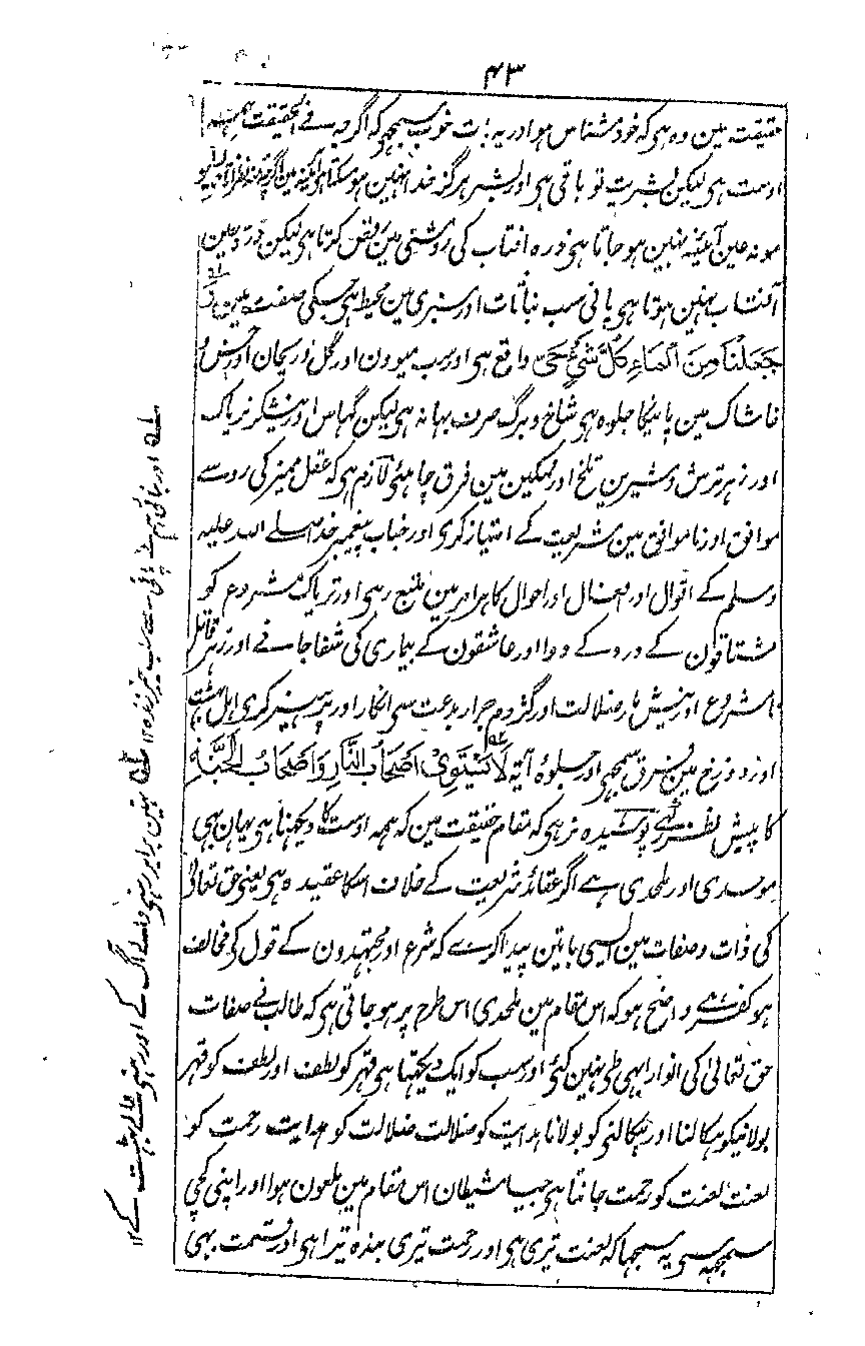 ۴۳
حقیقت مین وہ ہی کہ خود شناس ہو اور یہ بات خوب سمجھو کہ اگرچہ فے الحقیقت ہمہ
اوست ہی لیکن بشریت تو باقی ہی اور بشر ہرگز خدا نہین ہو سکتا ہو آئینہ مین اگرچہ
مونہ عین آئینہ نہین ہو جاتا ہی ذرہ افتاب کی روشنی مین رقص کرتا ہی لیکن ذرہ عین
آفتاب نہین ہوتا ہی پانی سب نباتات اور سبزی مین محیط ہی جسکی صفت مین وَ
جَعَلْنَا مِنَ الْمَاءِ كُلَّ شَيْءٍ حَيٍّ واقع ہی اور سب میوون اور گل و ریحان اور خس و
خاشاک مین پانیکا جلوہ ہی شاخ و برگ صرف بہانہ ہی لیکن گہاس اور نیشکر تریاک
اور زہر ترش و شیرین تلخ اور نمکین مین فرق چاہئی لازم ہی کہ عقل ممیز کی رو سے
موافق اور ناموافق مین شریعت کے امتیاز کری اور جناب پیغمبر خدا صلے اللہ علیہ
وسلم کے اقوال اور افعال اور احوال کا ہر امر مین متبع رہی اور تریاک مشروع کو
مشتاقون کے درد کے دوا اور عاشقون کے بیاری کی شفا جانے اور زہر قاتل
نامشروع اور نیش مار ضلالت اور گژدم جرار بدعت سی انکار اور پرہیز کری اہل بہشت
اور دوزخ مین فرق سمجہی اور جلوہ آیۃ لَا يَسْتَوِي اَصْحَابُ النَّارِ وَاَصْحَابُ الْجَنَّةِ
کا پیش نظر رکہے پوشیدہ نرہی کہ مقام حقیقت مین کہ ہمہ اوست کا دیکہنا ہی یہان بہی
موحدی اور ملحدی ہے اگر عقائد شریعت کے خلاف اسکا عقیدہ ہی یعنی حق تعالیٰ
کی ذات و صفات مین ایسی باتین پیدا کرے کہ شرع اور مجتہدون کے قول کو مخالف
ہو کفر ہے واضح ہو کہ اس مقام مین ملحدی اس طرح پر ہو جاتی ہی کہ طالب نے صفات
حق تعالیٰ کی انوار ابہی طی نہین کئی اور سب کو ایک دیکہتا ہی قہر کو لطف اور لطف کو قہر
بولا نیکو نکالنا اور نکالنی کو بولانا ہدایت کو ضلالت ضلالت کو ہدایت رحمت کو
لعنت لعنت کو رحمت جانتا ہی جیسا شیطان اس مقام مین ملعون ہوا اور اپنی کجی
سمجہہ سی یہ سمجہا کہ لعنت تیری ہی اور رحمت تیری بندہ تیرا ہی اور قسمت بہی
لہ اور بنائی ہم نے پانی سے سب چیز زندہ ۱۲ لہ نہین برابر رہنی والے آگ کے اور رہنی والے بہشت کے ۱۲